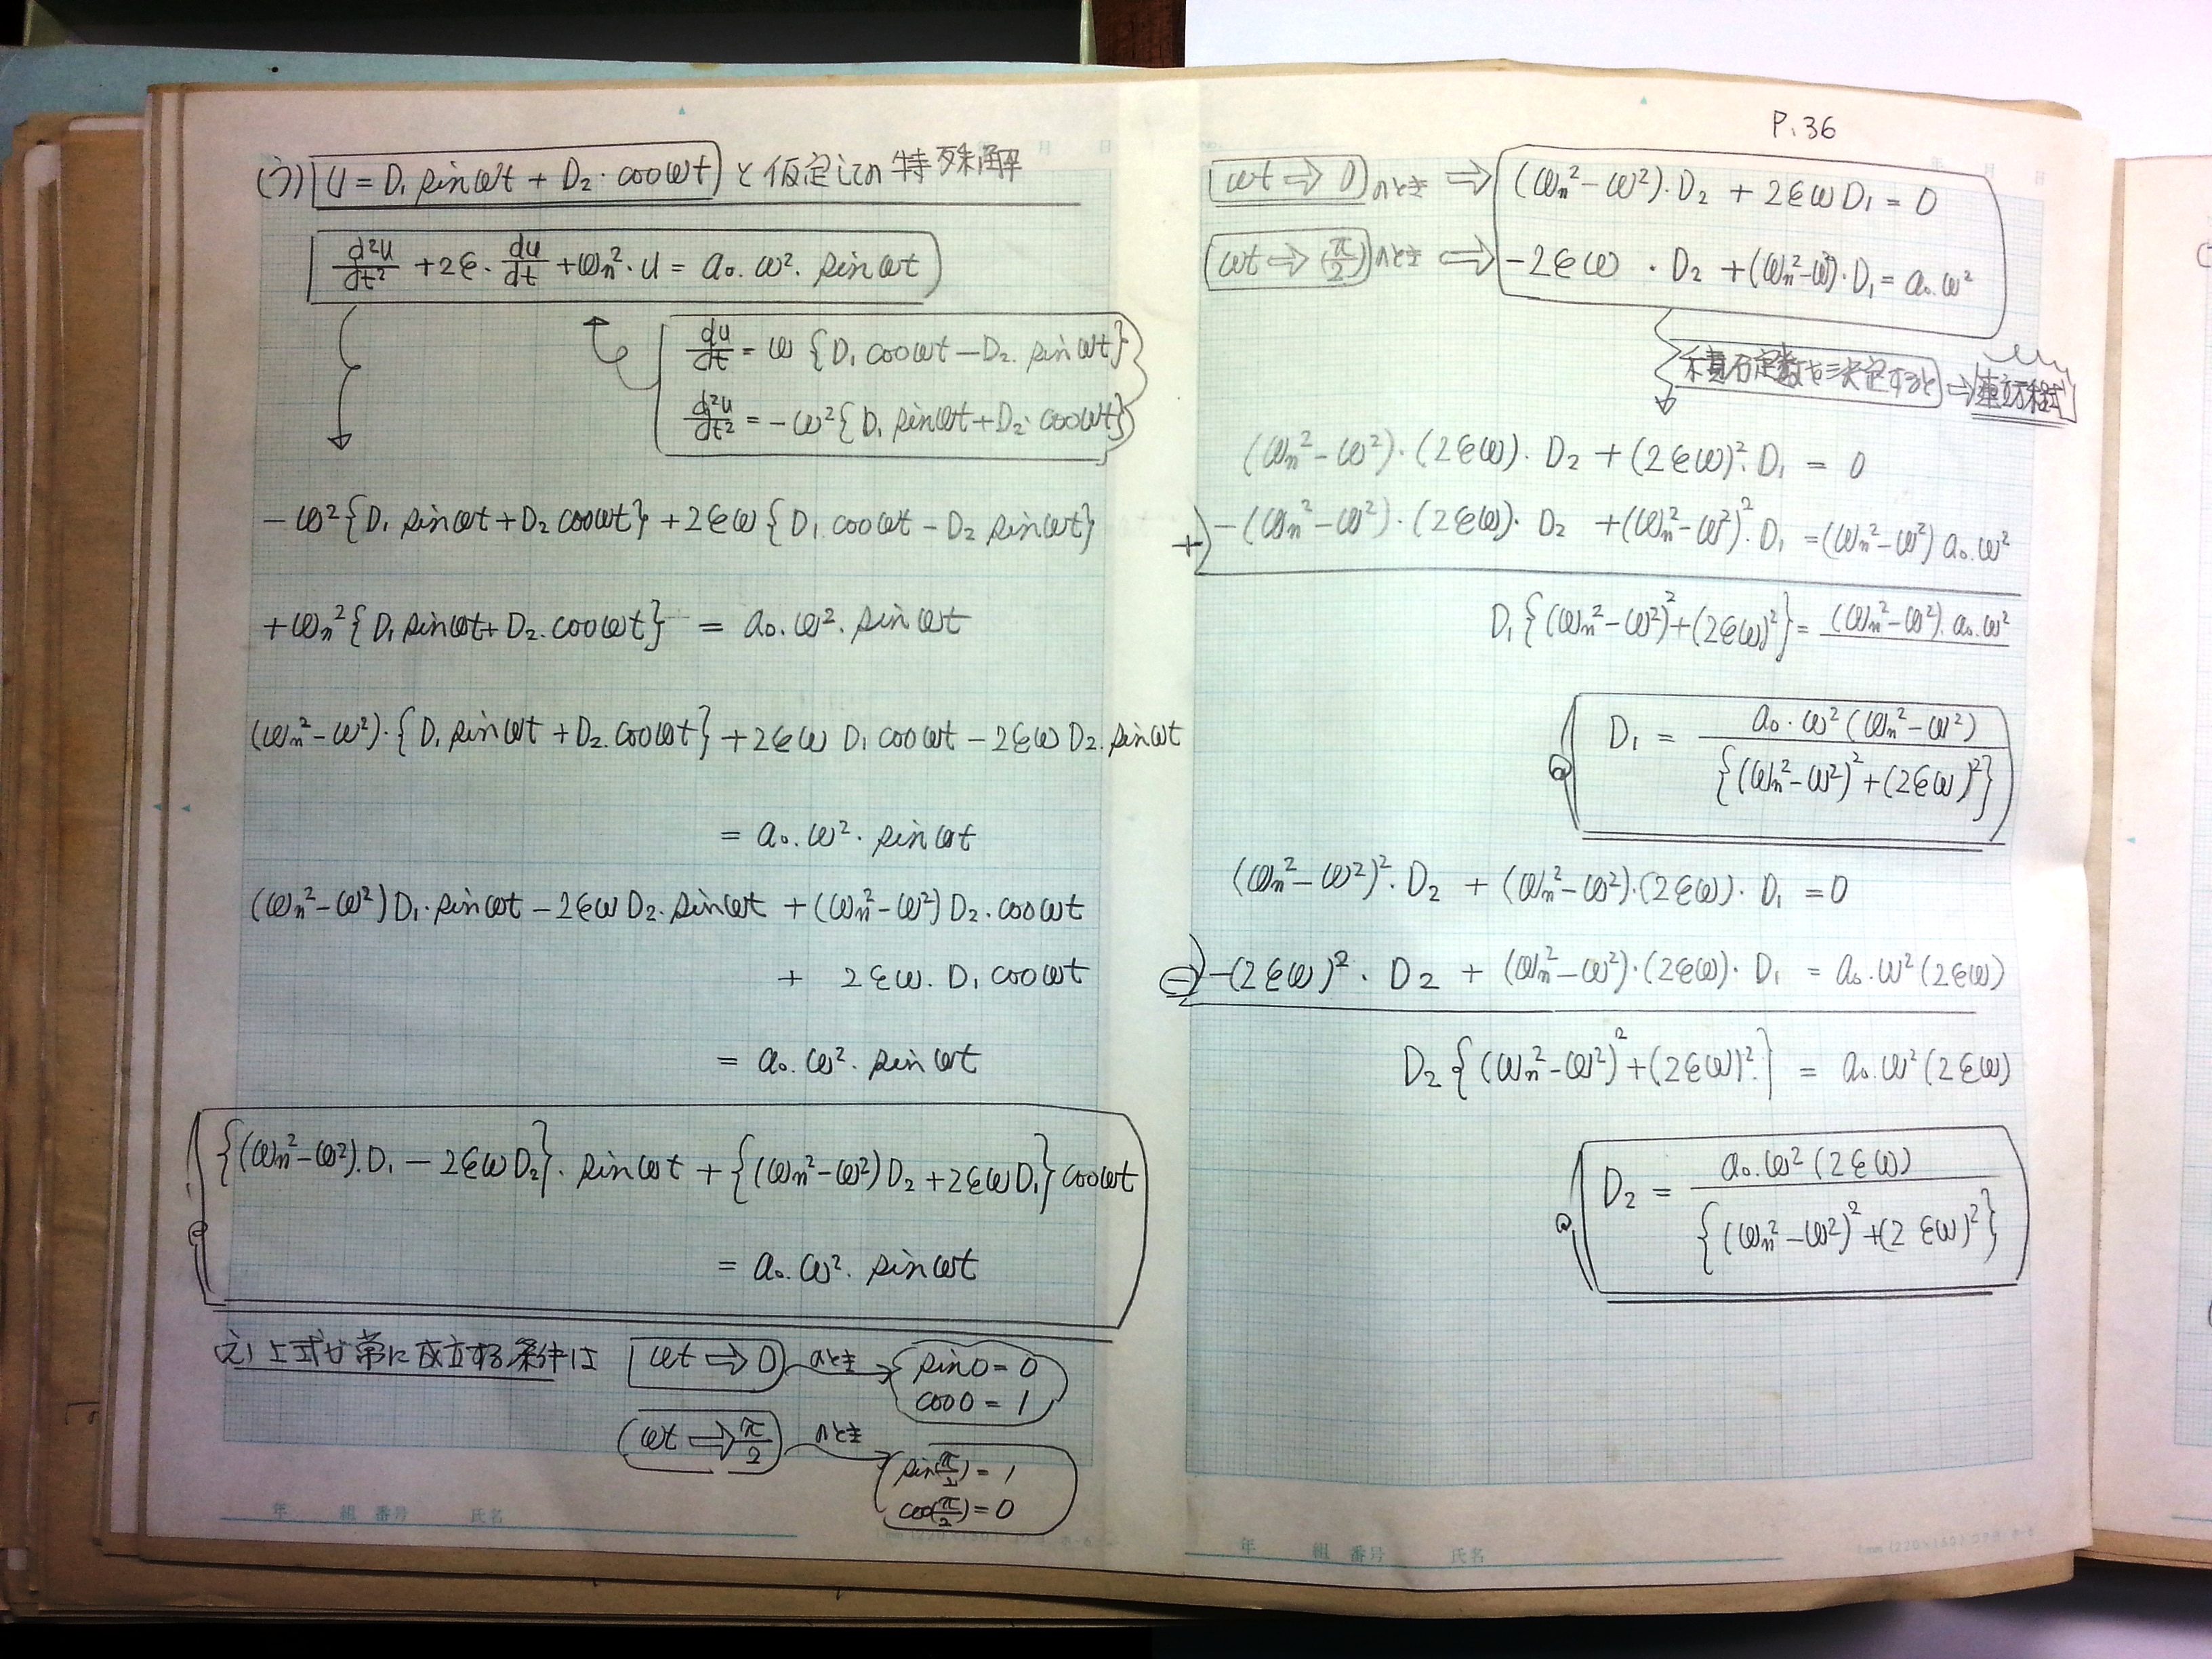 (う) U = D₁ sinωt + D₂・cosωt と仮定しての特殊解
d²u/dt² + 2ε・du/dt + ωn²・u = a₀・ω²・sinωt
du/dt = ω{D₁ cosωt − D₂・sinωt}
d²u/dt² = −ω²{D₁ sinωt + D₂・cosωt}
−ω²{D₁ sinωt + D₂ cosωt} + 2εω{D₁ cosωt − D₂ sinωt}
+ωn²{D₁ sinωt + D₂・cosωt} = a₀・ω²・sinωt
(ωn²−ω²)・{D₁ sinωt + D₂・cosωt} + 2εω D₁ cosωt − 2εω D₂・sinωt
= a₀・ω²・sinωt
(ωn²−ω²)D₁・sinωt − 2εω D₂・sinωt + (ωn²−ω²)D₂・cosωt
+ 2εω・D₁ cosωt
= a₀・ω²・sinωt
{(ωn²−ω²)・D₁ − 2εωD₂}・sinωt + {(ωn²−ω²)D₂ + 2εωD₁}cosωt
= a₀・ω²・sinωt
え) 上式が常に成立する条件は ωt ⇒ 0 のとき sin0 = 0
cos0 = 1
ωt ⇒ π/2 のとき sin(π/2) = 1
cos(π/2) = 0
年 組 番号 氏名
P.36
ωt ⇒ 0 のとき ⇒ (ωn²−ω²)・D₂ + 2εωD₁ = 0
ωt ⇒ (π/2) のとき ⇒ −2εω・D₂ + (ωn²−ω²)・D₁ = a₀・ω²
定数を決定すると → 連立方程式
(ωn²−ω²)・(2εω)・D₂ + (2εω)²・D₁ = 0
+) −(ωn²−ω²)・(2εω)・D₂ + (ωn²−ω²)²・D₁ = (ωn²−ω²)a₀・ω²
D₁{(ωn²−ω²)² + (2εω)²} = (ωn²−ω²)・a₀・ω²
D₁ = a₀・ω²(ωn²−ω²) / {(ωn²−ω²)² + (2εω)²}
(ωn²−ω²)²・D₂ + (ωn²−ω²)・(2εω)・D₁ = 0
−) −(2εω)²・D₂ + (ωn²−ω²)・(2εω)・D₁ = a₀・ω²(2εω)
D₂{(ωn²−ω²)² + (2εω)²・} = a₀・ω²(2εω)
D₂ = a₀・ω²(2εω) / {(ωn²−ω²)² + (2εω)²}
年 組 番号 氏名